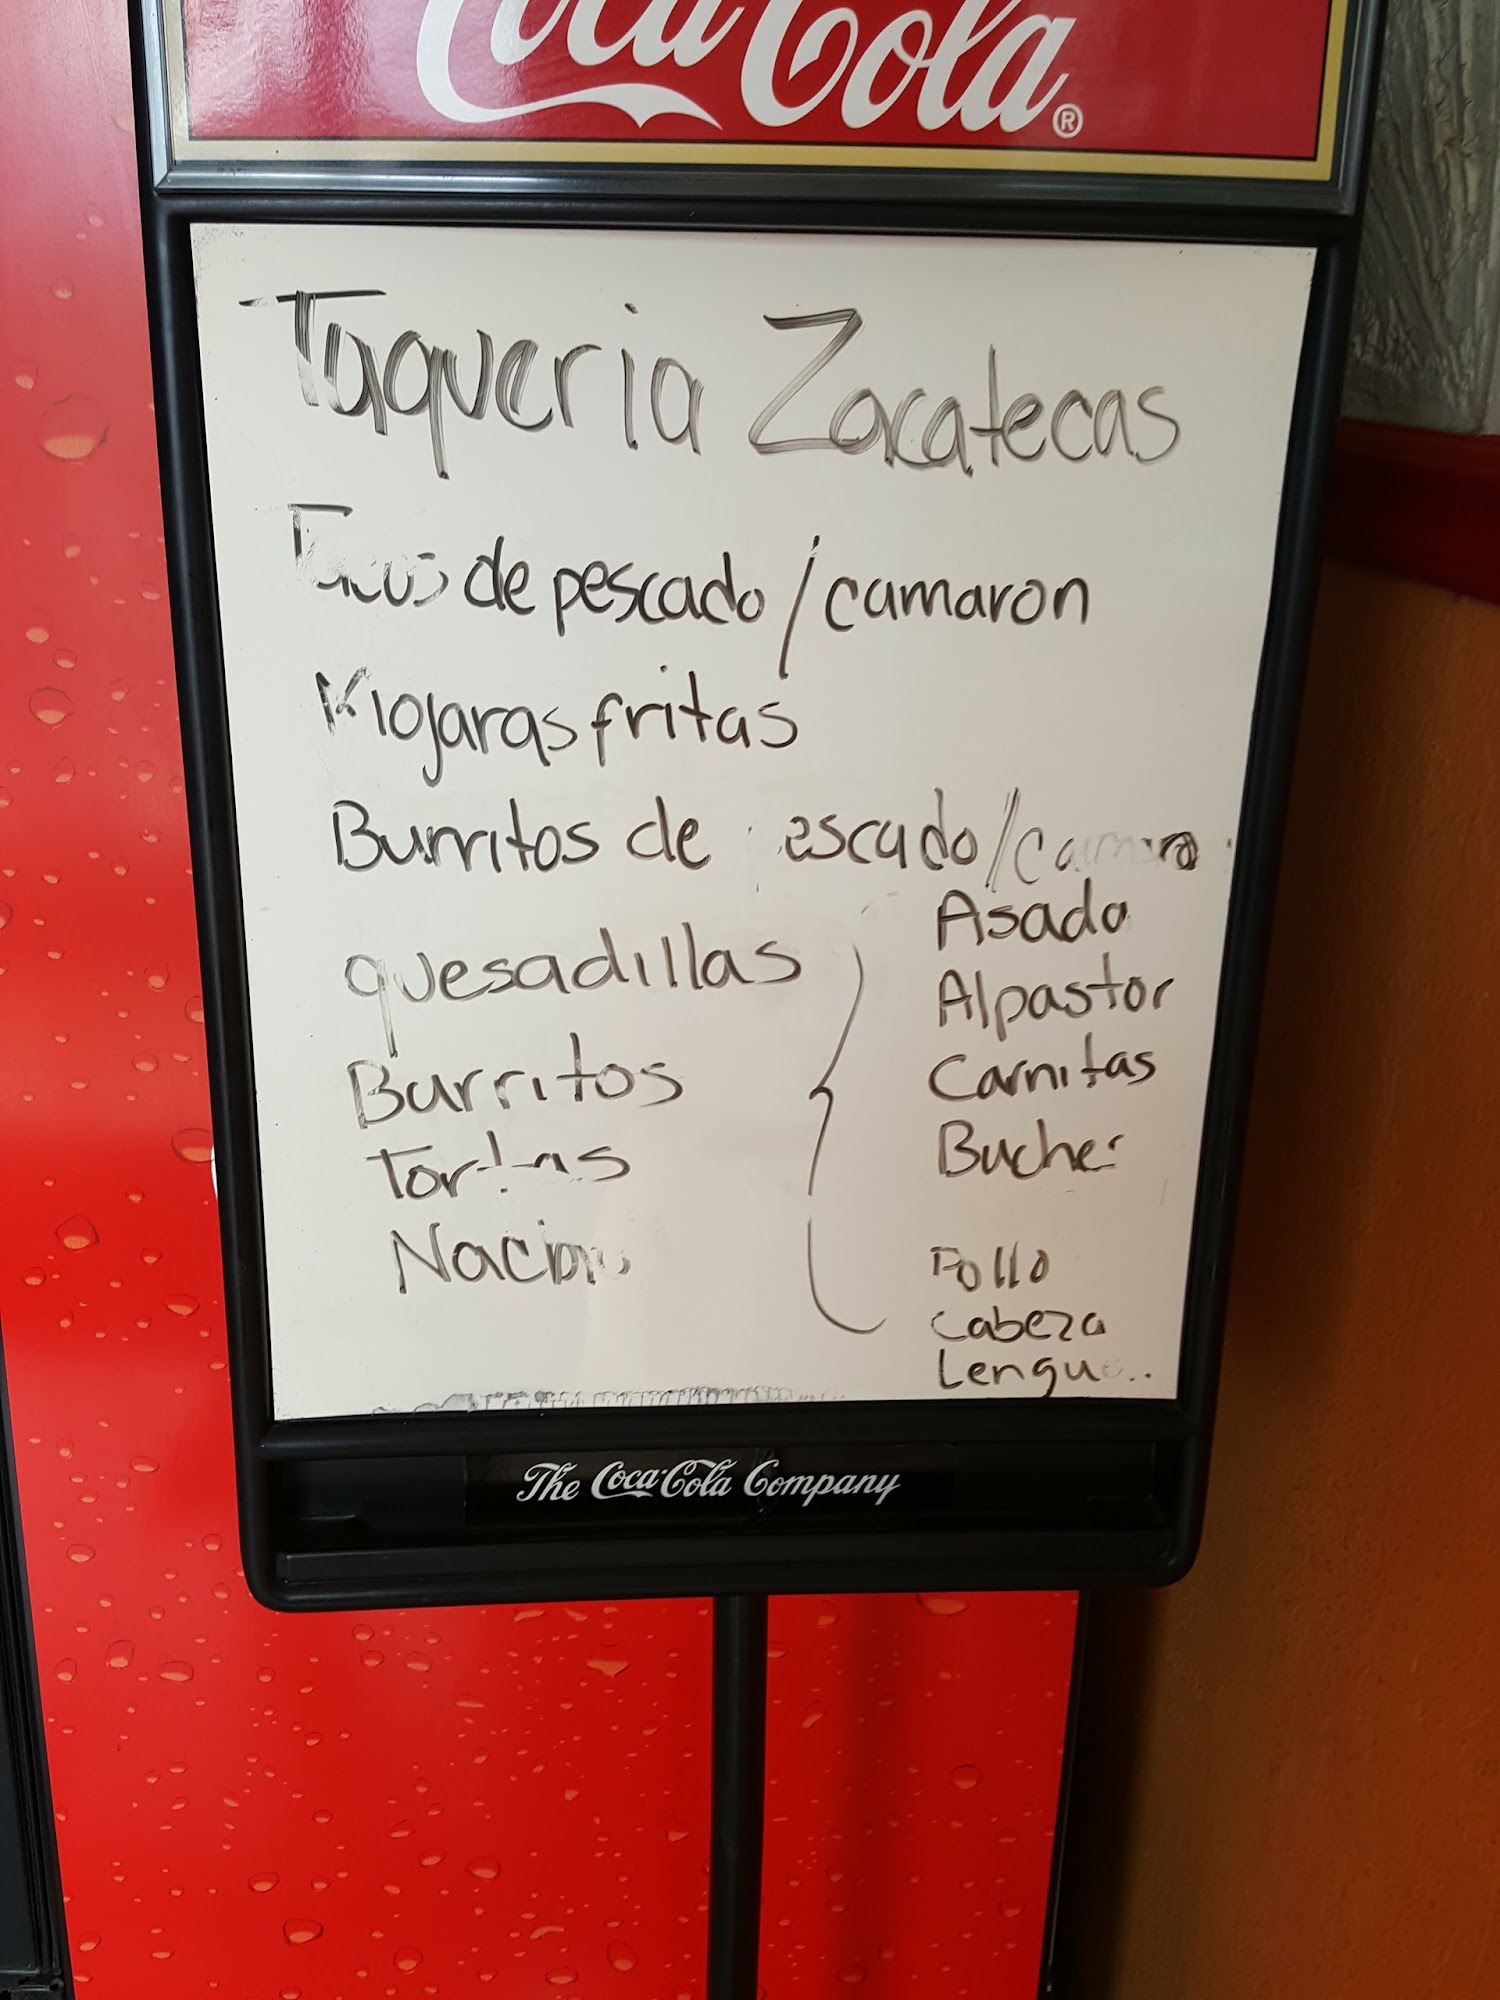 Coca-Cola®
Taqueria Zacatecas
Tacos de pescado / camaron
Mojaras fritas
Burritos de escado /
quesadillas
Burritos
Tortas
Asada
Alpastor
Carnitas
Buche
Pollo
Cabeza
Lengu
The Coca-Cola Company